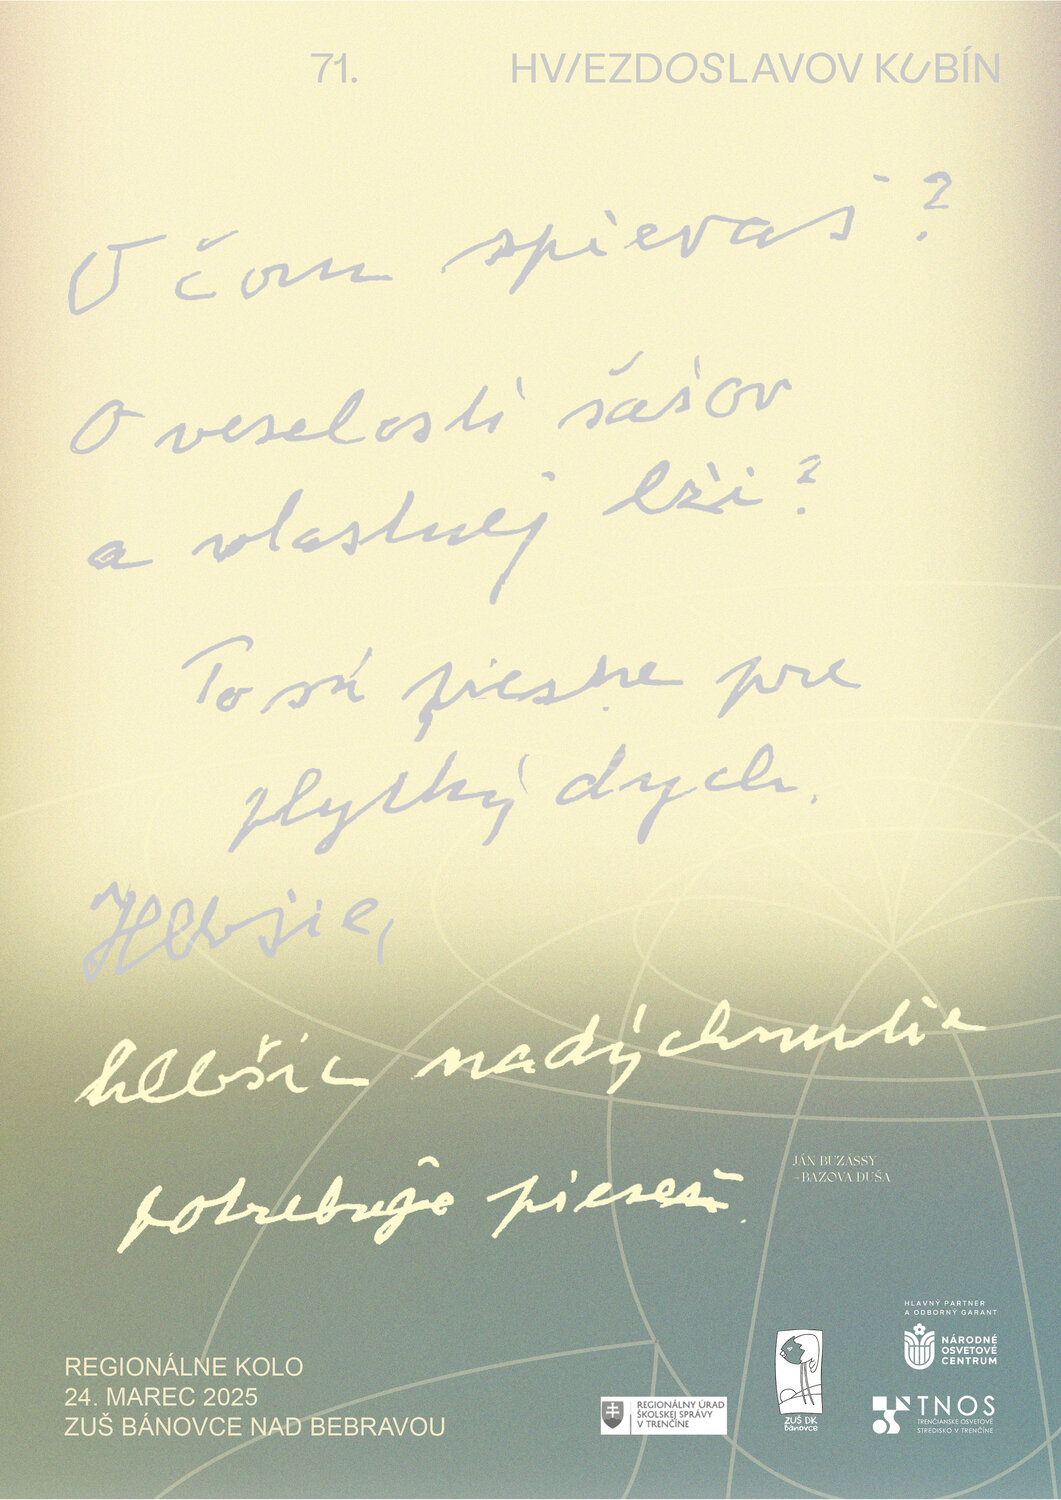 71. HVIEZDOSLAVOV KUBÍN
O čom spievaš?
O veselosti šašov
a vlastnej lži?
To sú piesne pre
plytký dych.
Hlbšie,
hlbšie nadýchnutie
potrebuje pieseň.
JÁN BUZÁSSY
– BAZOVA DUŠA
HLAVNÝ PARTNER
A ODBORNÝ GARANT
NÁRODNÉ
OSVETOVÉ
CENTRUM
REGIONÁLNE KOLO
24. MAREC 2025
ZUŠ BÁNOVCE NAD BEBRAVOU
REGIONÁLNY ÚRAD
ŠKOLSKEJ SPRÁVY
V TRENČÍNE
ZUŠ DK
Bánovce
TNOS
TRENČIANSKE OSVETOVÉ
STREDISKO V TRENČÍNE